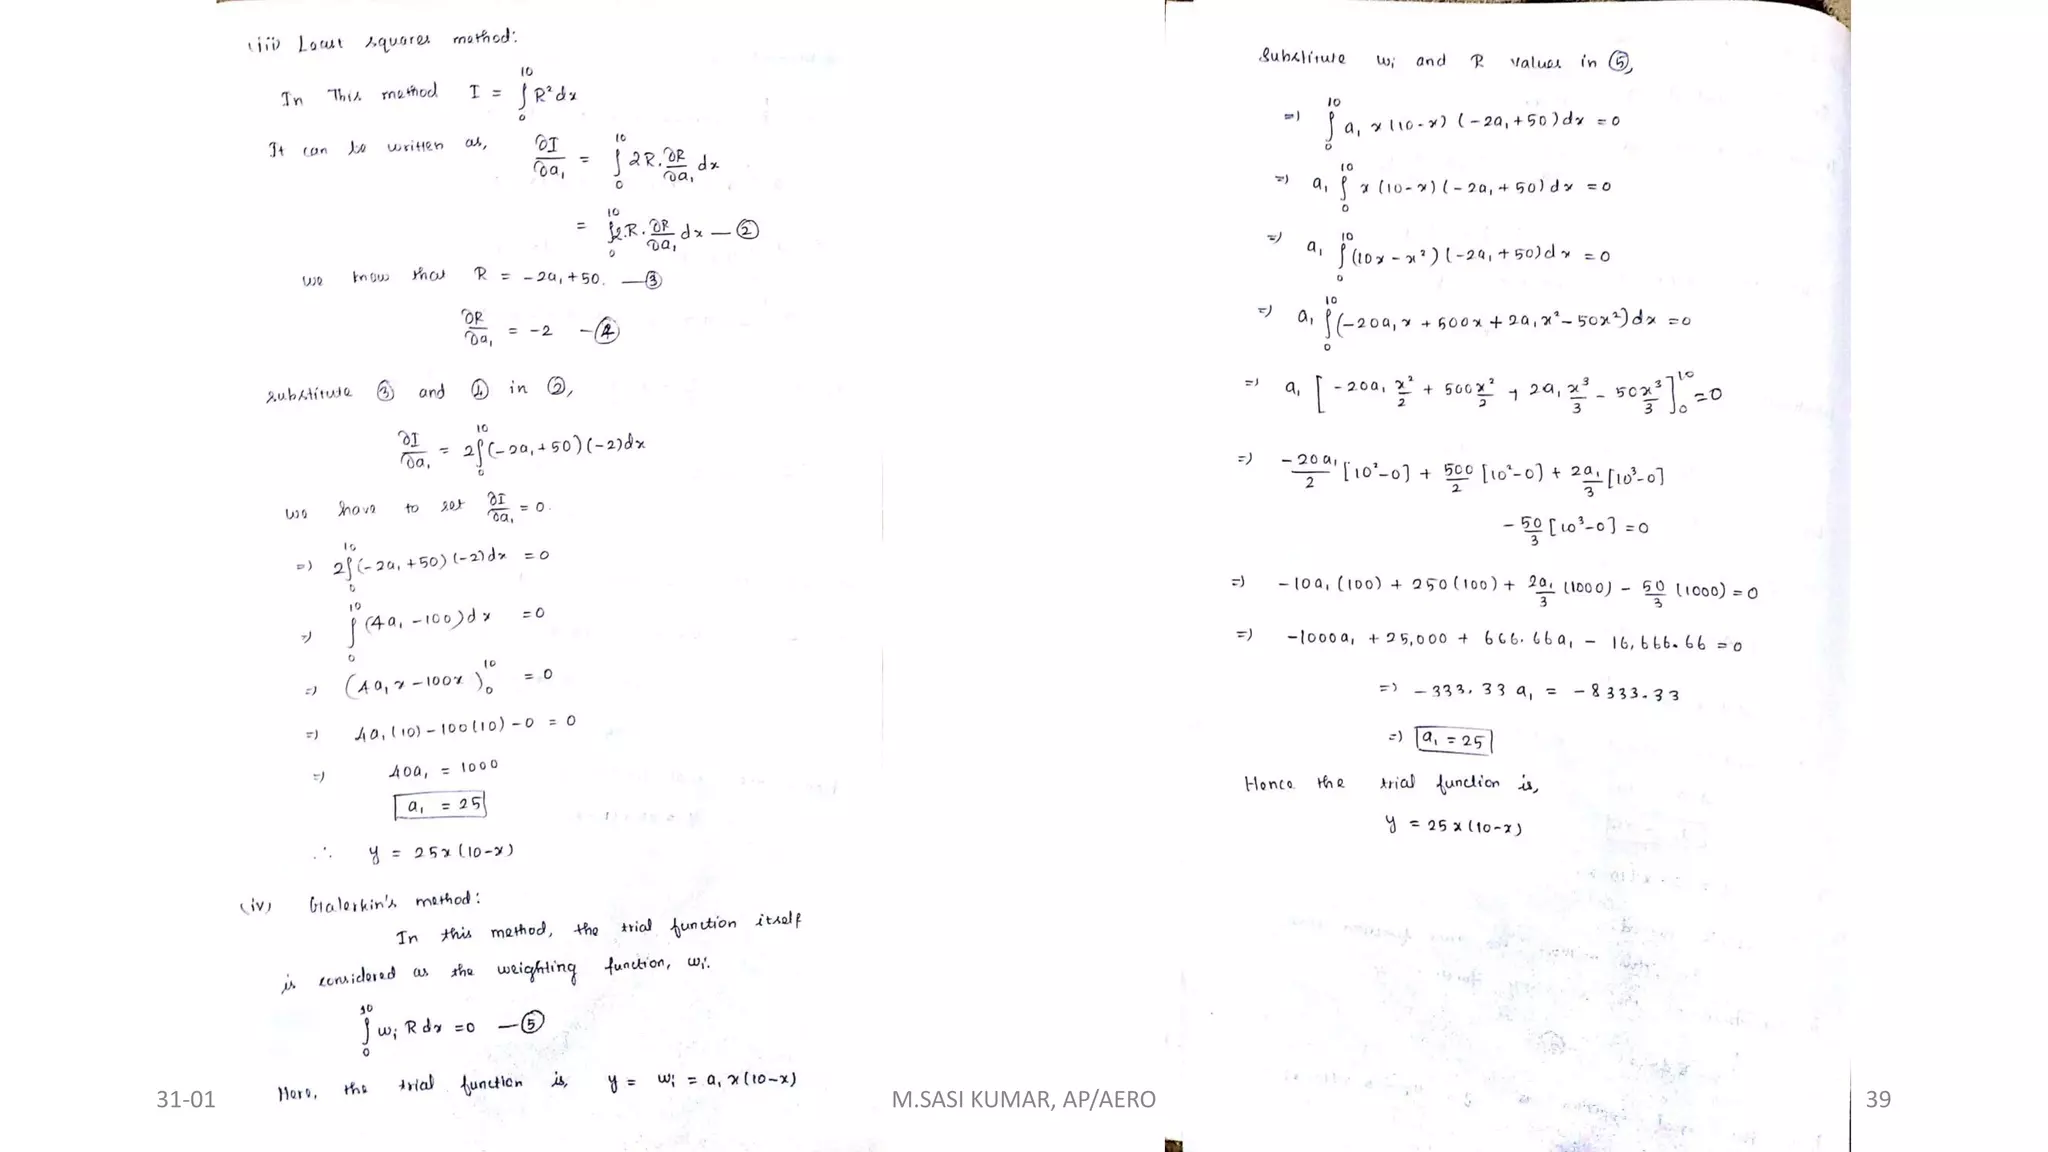 (iii) Least squares method:
In This method I = ∫₀¹⁰ R² dx
It can be written as, ∂I/∂a₁ = ∫₀¹⁰ 2R. ∂R/∂a₁ dx
= ∫₀¹⁰ 2.R. ∂R/∂a₁ dx — ②
we know that R = -2a₁ + 50. — ③
∂R/∂a₁ = -2 — ④
substitute ③ and ④ in ②,
∂I/∂a₁ = 2∫₀¹⁰ (-2a₁ + 50) (-2) dx
we have to set ∂I/∂a₁ = 0.
=) 2∫₀¹⁰ (-2a₁ + 50) (-2) dx = 0
=) ∫₀¹⁰ (4a₁ - 100) dx = 0
=) (4a₁x - 100x)₀¹⁰ = 0
=) 4a₁(10) - 100(10) - 0 = 0
=) 40a₁ = 1000
a₁ = 25
∴ y = 25x (10-x)
(iv) Galerkin's method:
In this method, the trial function itself
is considered as the weighting function, wᵢ.
∫₀¹⁰ wᵢ R dx = 0 — ⑤
Here, the trial function is, y = wᵢ = a₁ x(10-x)
Substitute wᵢ and R values in ⑤,
=) ∫₀¹⁰ a₁ x(10-x) (-2a₁ + 50) dx = 0
=) a₁ ∫₀¹⁰ x (10-x) (-2a₁ + 50) dx = 0
=) a₁ ∫₀¹⁰ (10x - x²) (-2a₁ + 50) dx = 0
=) a₁ ∫₀¹⁰ (-20a₁x + 500x + 2a₁x² - 50x²) dx = 0
=) a₁ [-20a₁ x²/2 + 500 x²/2 + 2a₁ x³/3 - 50 x³/3]₀¹⁰ = 0
=) -20a₁/2 [10²-0] + 500/2 [10²-0] + 2a₁/3 [10³-0]
- 50/3 [10³-0] = 0
=) -10a₁ (100) + 250 (100) + 2a₁/3 (1000) - 50/3 (1000) = 0
=) -1000a₁ + 25,000 + 666.66a₁ - 16,666.66 = 0
=) -333.33 a₁ = -8333.33
=) a₁ = 25
Hence the trial function is,
y = 25x(10-x)
31-01
M.SASI KUMAR, AP/AERO
39